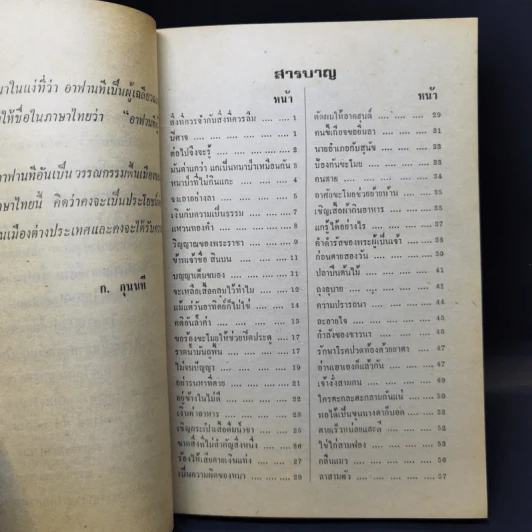 นาในแง่ที่ว่า อาฟานทีเป็นผู้เฉลียว
ให้ชื่อในภาษาไทยว่า "อาฟานที
อาฟานทีอันเป็นวรรณกรรมพื้นเมือง
ภาษาไทยนี้ คิดว่าคงจะเป็นประโยชน์
นเมืองต่างประเทศและคงจะได้รับ
ก. กุนนที
สารบาญ
หน้า
สิ่งที่ควรจำกับสิ่งที่ควรลืม .... .... 1
ปีศาจ .... .... .... .... 1
ต่อไปจึงจะรู้ .... .... .... 2
มันดำกว่า แกเป็นหมาป่าเหมือนกัน 3
หมาป่าที่ไม่กินแกะ .... .... 4
จงเอาอย่างลา .... .... .... 5
เงินกับความเป็นธรรม .... .... 7
แหวนทองคำ .... .... .... 8
วิญญาณของพระราชา .... .... 9
ข้าพเจ้าชื่อ .... .... 10
.... .... .... 11
จะเหลือเสื้อคลุมไว้ทำไม .... .... 12
แม้แต่วันอาทิตย์ก็ไม่ใช่ .... .... 14
คติอันล้ำค่า .... .... .... 15
ขอร้องขะโมยให้ช่วยปิดประตู .... 17
.... .... .... 17
ไม่จนปัญญา .... .... .... 19
.... .... .... 21
อยู่ข้างในไม่ดี .... .... .... 21
เงินค่าอาหาร .... .... .... 23
.... .... 25
ขาดสิ่งที่ไม่สำคัญสิ่งหนึ่ง .... .... 26
ร้องไห้เสียดายเงินแท่ง .... .... 27
เป็นความผิดของหมา .... .... 28
หน้า
ตัดผมให้อาคสนต์ .... .... .... 29
คนขี้เกียจขอยืมลา .... ....
นายอำเภอกับสุนัข .... ....
ป้องกันขะโมย .... ....
คนตาย .... .... .... ....
อาศัยขะโมยช่วยย้ายบ้าน .... ....
เชิญเสื้อผ้ากินอาหาร .... ....
แกรู้ได้อย่างไร .... ....
คำดำรัสของพระผู้เป็นเจ้า ....
ก่อนตายสองวัน .... .... ....
ปลาปีนต้นไม้ .... .... .... 41
ถุงอุบาย .... .... .... .... 41
ความปรารถนา .... .... .... 42
ละอายใจ .... .... .... .... 44
กำลังของชาวนา .... .... .... 46
รักษาโรคปวดท้องด้วยยาตา .... 47
อ่านเอาเองก็แล้วกัน .... .... 47
เจ้างั่งสามคน .... .... .... 49
ใครตะกละตะกลามกันแน่ .... 49
พอได้เป็นขุนนางตาก็บอด .... 51
ตายเร็วหน่อยและดี .... .... 52
ไข่ไก่สามฟอง .... .... .... 53
กลืนแมว .... .... .... .... 56
ลาสามตัว .... .... .... .... 57